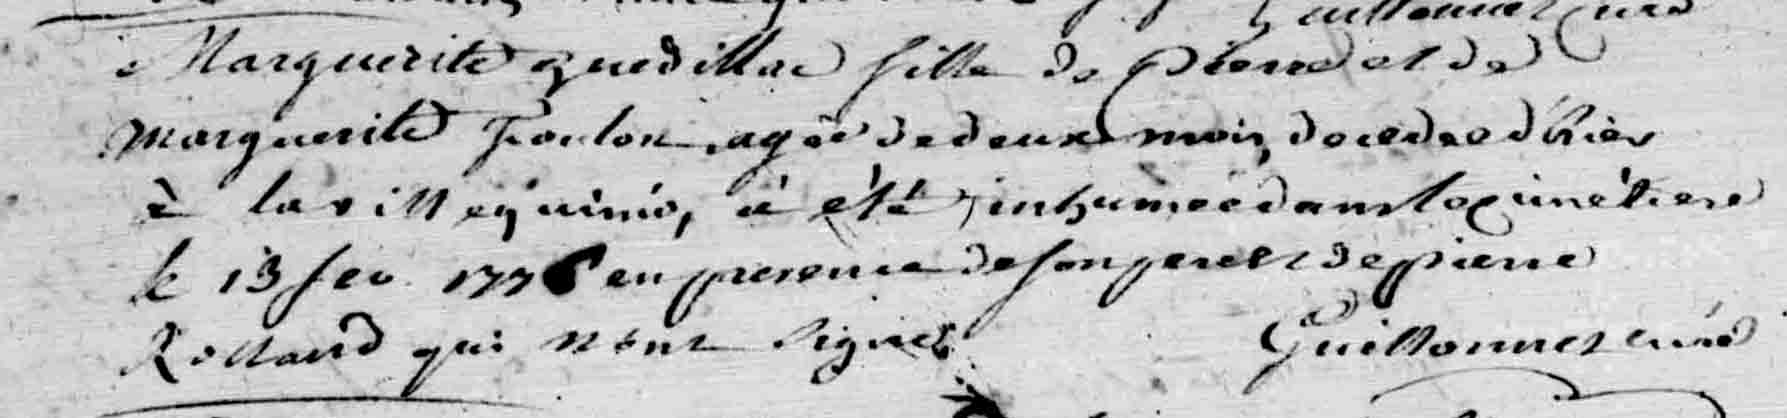 Guillonnet curé
Marguerite quedillac fille de Pierre et de
marguerite Foulon, agée de deux mois, decedee d'hier
à la ville quinio, à été inhumée dans le cimetiere
le 13 fev. 1776 en presence de son pere et de pierre
Rolland qui n'ont signé
Guillonnet curé